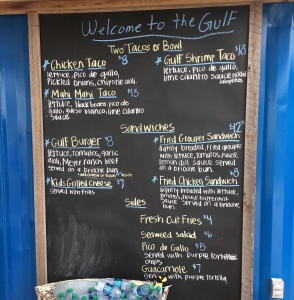 Welcome to the Gulf
Two Tacos or Bowl
Chicken Taco $8
lettuce, pico de gallo,
pickled onions, chipotle aioli
Gulf Shrimp Taco $13
lettuce, pico de gallo,
lime cilantro sauce
Mahi Mahi Taco $13
lettuce, black beans, pico de
gallo, queso blanco, lime cilantro
sauce
Sandwiches
Gulf Burger $8
lettuce, tomatoes, garlic
aioli, Meyer ranch beef
served on a brioche bun
Kids Grilled Cheese $7
served with fries
Fried Grouper Sandwich $12
lightly breaded, fried grouper
with lettuce, tomatoes,
lemon dill sauce. Served on
a brioche bun.
Fried Chicken Sandwich $8
lightly breaded with lettuce,
tomato, house buttermilk
sauce served on a brioche
bun
Sides
Fresh Cut Fries $4
Seaweed salad $6
Pico de Gallo $5
served with purple tortilla
chips
Guacamole $7
served with purple tortilla